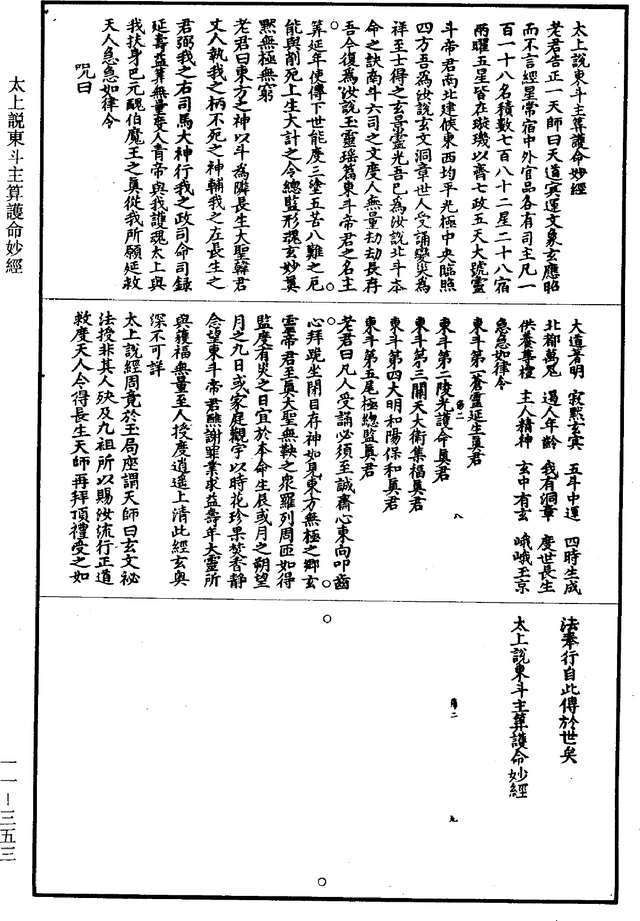 太上說東斗主算護命妙經
老君告正一天師曰天道冥運文象玄應昭
而不言經星常宿中外官品各有司主凡一
百一十八名積數七百八十二星二十八宿
兩曜五星皆在璇璣以齊七政五天大號靈
斗帝君南北建候東西均平光極中央臨照
四方吾為汝說玄文洞章世人受誦變災為
祥至士得之玄景靈光吾已為汝說北斗本
命之訣南斗六司之文度人無量劫劫長存
吾今復為汝說玉靈瑤篇東斗帝君之名主
算延年使傳下世能度三塗五苦八難之厄
能與削死上生大計之令總監形魂玄妙奧
黙無極無窮
老君曰東方之神以斗為隣長生大聖韓君
丈人執我之柄不死之神輔我之左長生之
君弼我之右司馬大神行我之政司命司錄
延壽益算無量度人青帝與我護魂太上與
我扶身巴元醜伯魔王之真從我所願延救
天人急急如律令
呪曰
大道著明　寂黙玄冥　五斗中運　四時生成
北都萬鬼　遏人年齡　我有洞章　度世長生
供養尊禮　主人精神　玄中有玄　峨峨玉京
急急如律令
東斗第一蒼靈延生真君
東斗第二陵光護命真君
東斗第三關天大衛集福真君
東斗第四大明和陽保和真君
東斗第五尾極總監真君
老君曰凡人受誦必須至誠齋心東向叩齒
心拜跪坐閉目存神如見東方無極之鄉玄
靈帝君至真大聖無鞅之衆羅列周匝如得
監度有災之日宜於本命生辰或月之朔望
月之九日或家庭觀宇以時花珍果焚香靜
念望東斗帝君醮謝罪業求益壽年大靈所
與獲福無量至人授度逍遥上清此經玄奧
深不可詳
太上說經周竟於玉局座謂天師曰玄文祕
法授非其人殃及九祖所以賜汝流行正道
救度天人令得長生天師再拜頂禮受之如
法奉行自此傳於世矣
太上說東斗主算護命妙經
太上説東斗主算護命妙經
一一－三五三
八
九